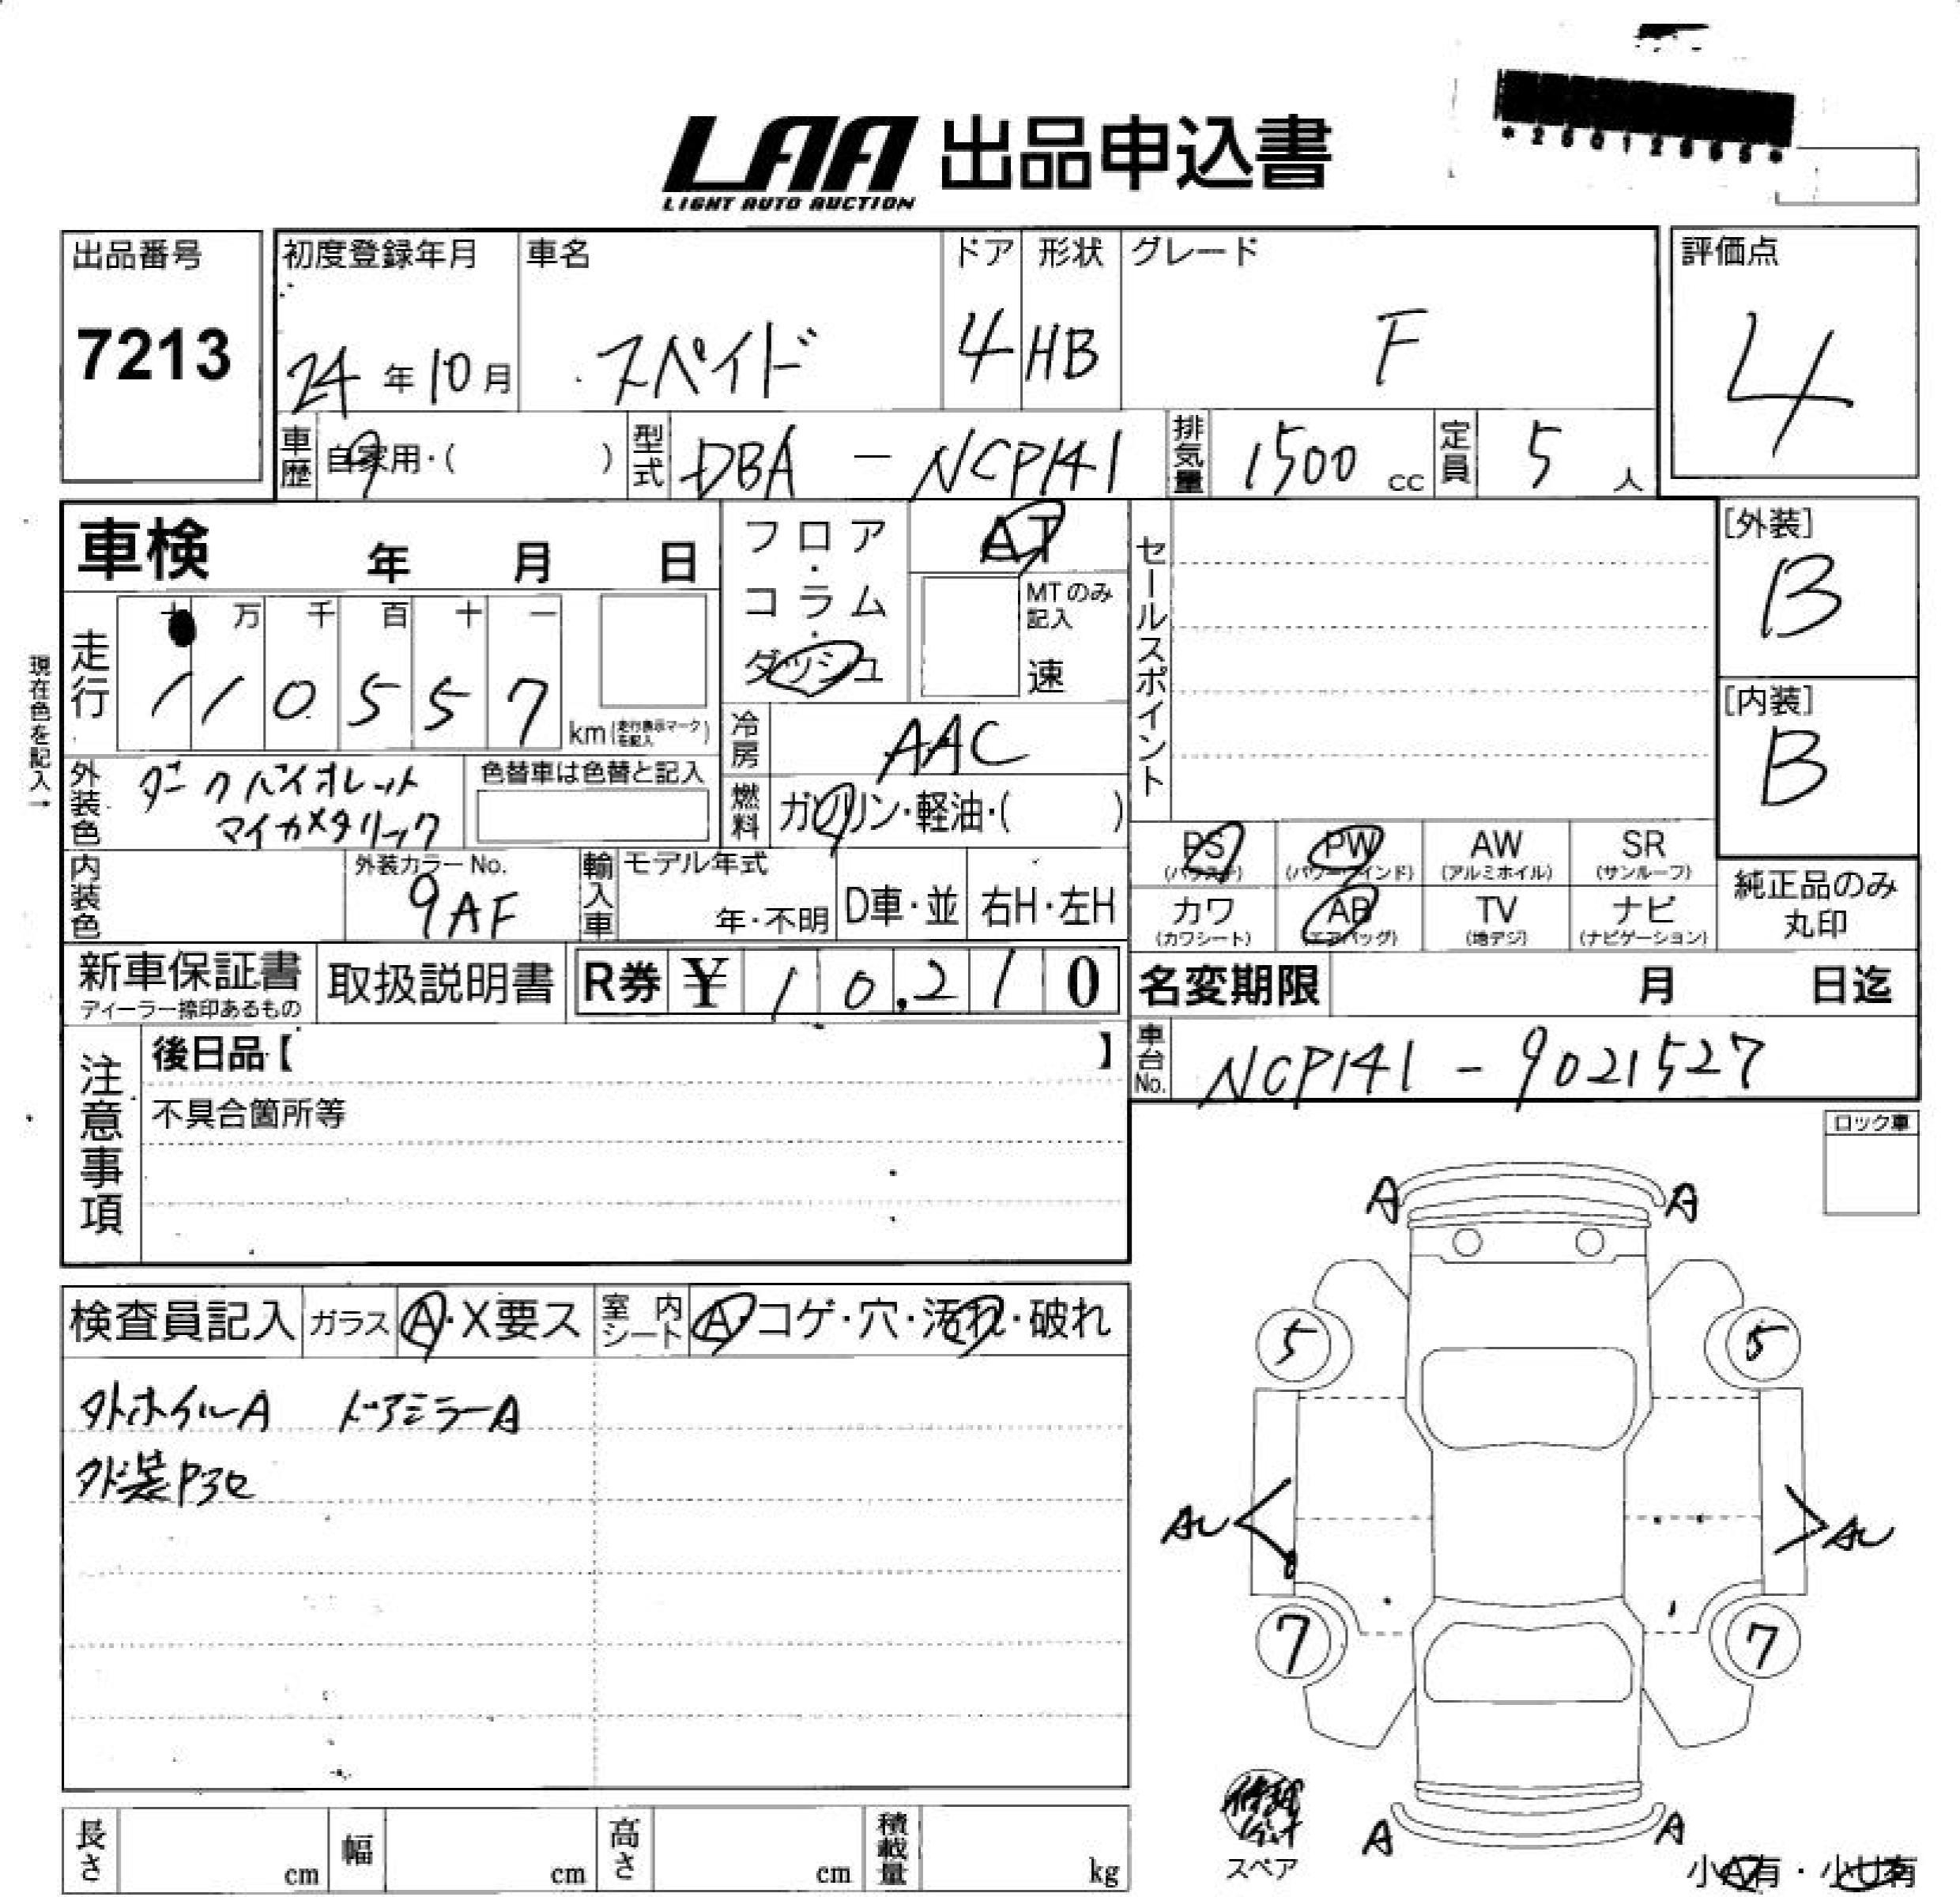 LAA 出品申込書
LIGHT AUTO AUCTION
*25012565*
出品番号 初度登録年月 車名 ドア 形状 グレード 評価点
7213 24年10月 スペイド 4 HB F 4
車歴 自家用・( ) 型式 DBA - NCP141 排気量 1500 cc 定員 5 人
車検 年 月 日
フロア・コラム・ダッシュ
AT
MTのみ記入
速
セールスポイント
[外装]
B
[内装]
B
現在色を記入→
走行 十 万 千 百 十 一
1 1 0 5 5 7 km (走行表示マークを記入)
冷房 AAC
燃料 ガソリン・軽油・( )
外装色 ダークバイオレット
マイカメタリック
色替車は色替と記入
内装色 外装カラーNo.
9AF
輸入車 モデル年式
年・不明 D車・並 右H・左H
PS PW AW SR
(パワステ) (パワーウインド) (アルミホイル) (サンルーフ)
カワ AB TV ナビ
(カワシート) (エアバッグ) (地デジ) (ナビゲーション)
純正品のみ
丸印
新車保証書 取扱説明書 R券 ¥ 1 0,2 1 0
ディーラー捺印あるもの
名変期限 月 日迄
車台No. NCP141 - 9021527
注意事項
後日品【 】
不具合箇所等
ロック車
検査員記入 ガラス A・X要ス 室内シート A・コゲ・穴・汚れ・破れ
外ホイルA ドアミラーA
外装P3e
A A
5 5
AU AU
7 7
A A
修理キット
スペア
小A有・小U有
長さ cm 幅 cm 高さ cm 積載量 kg